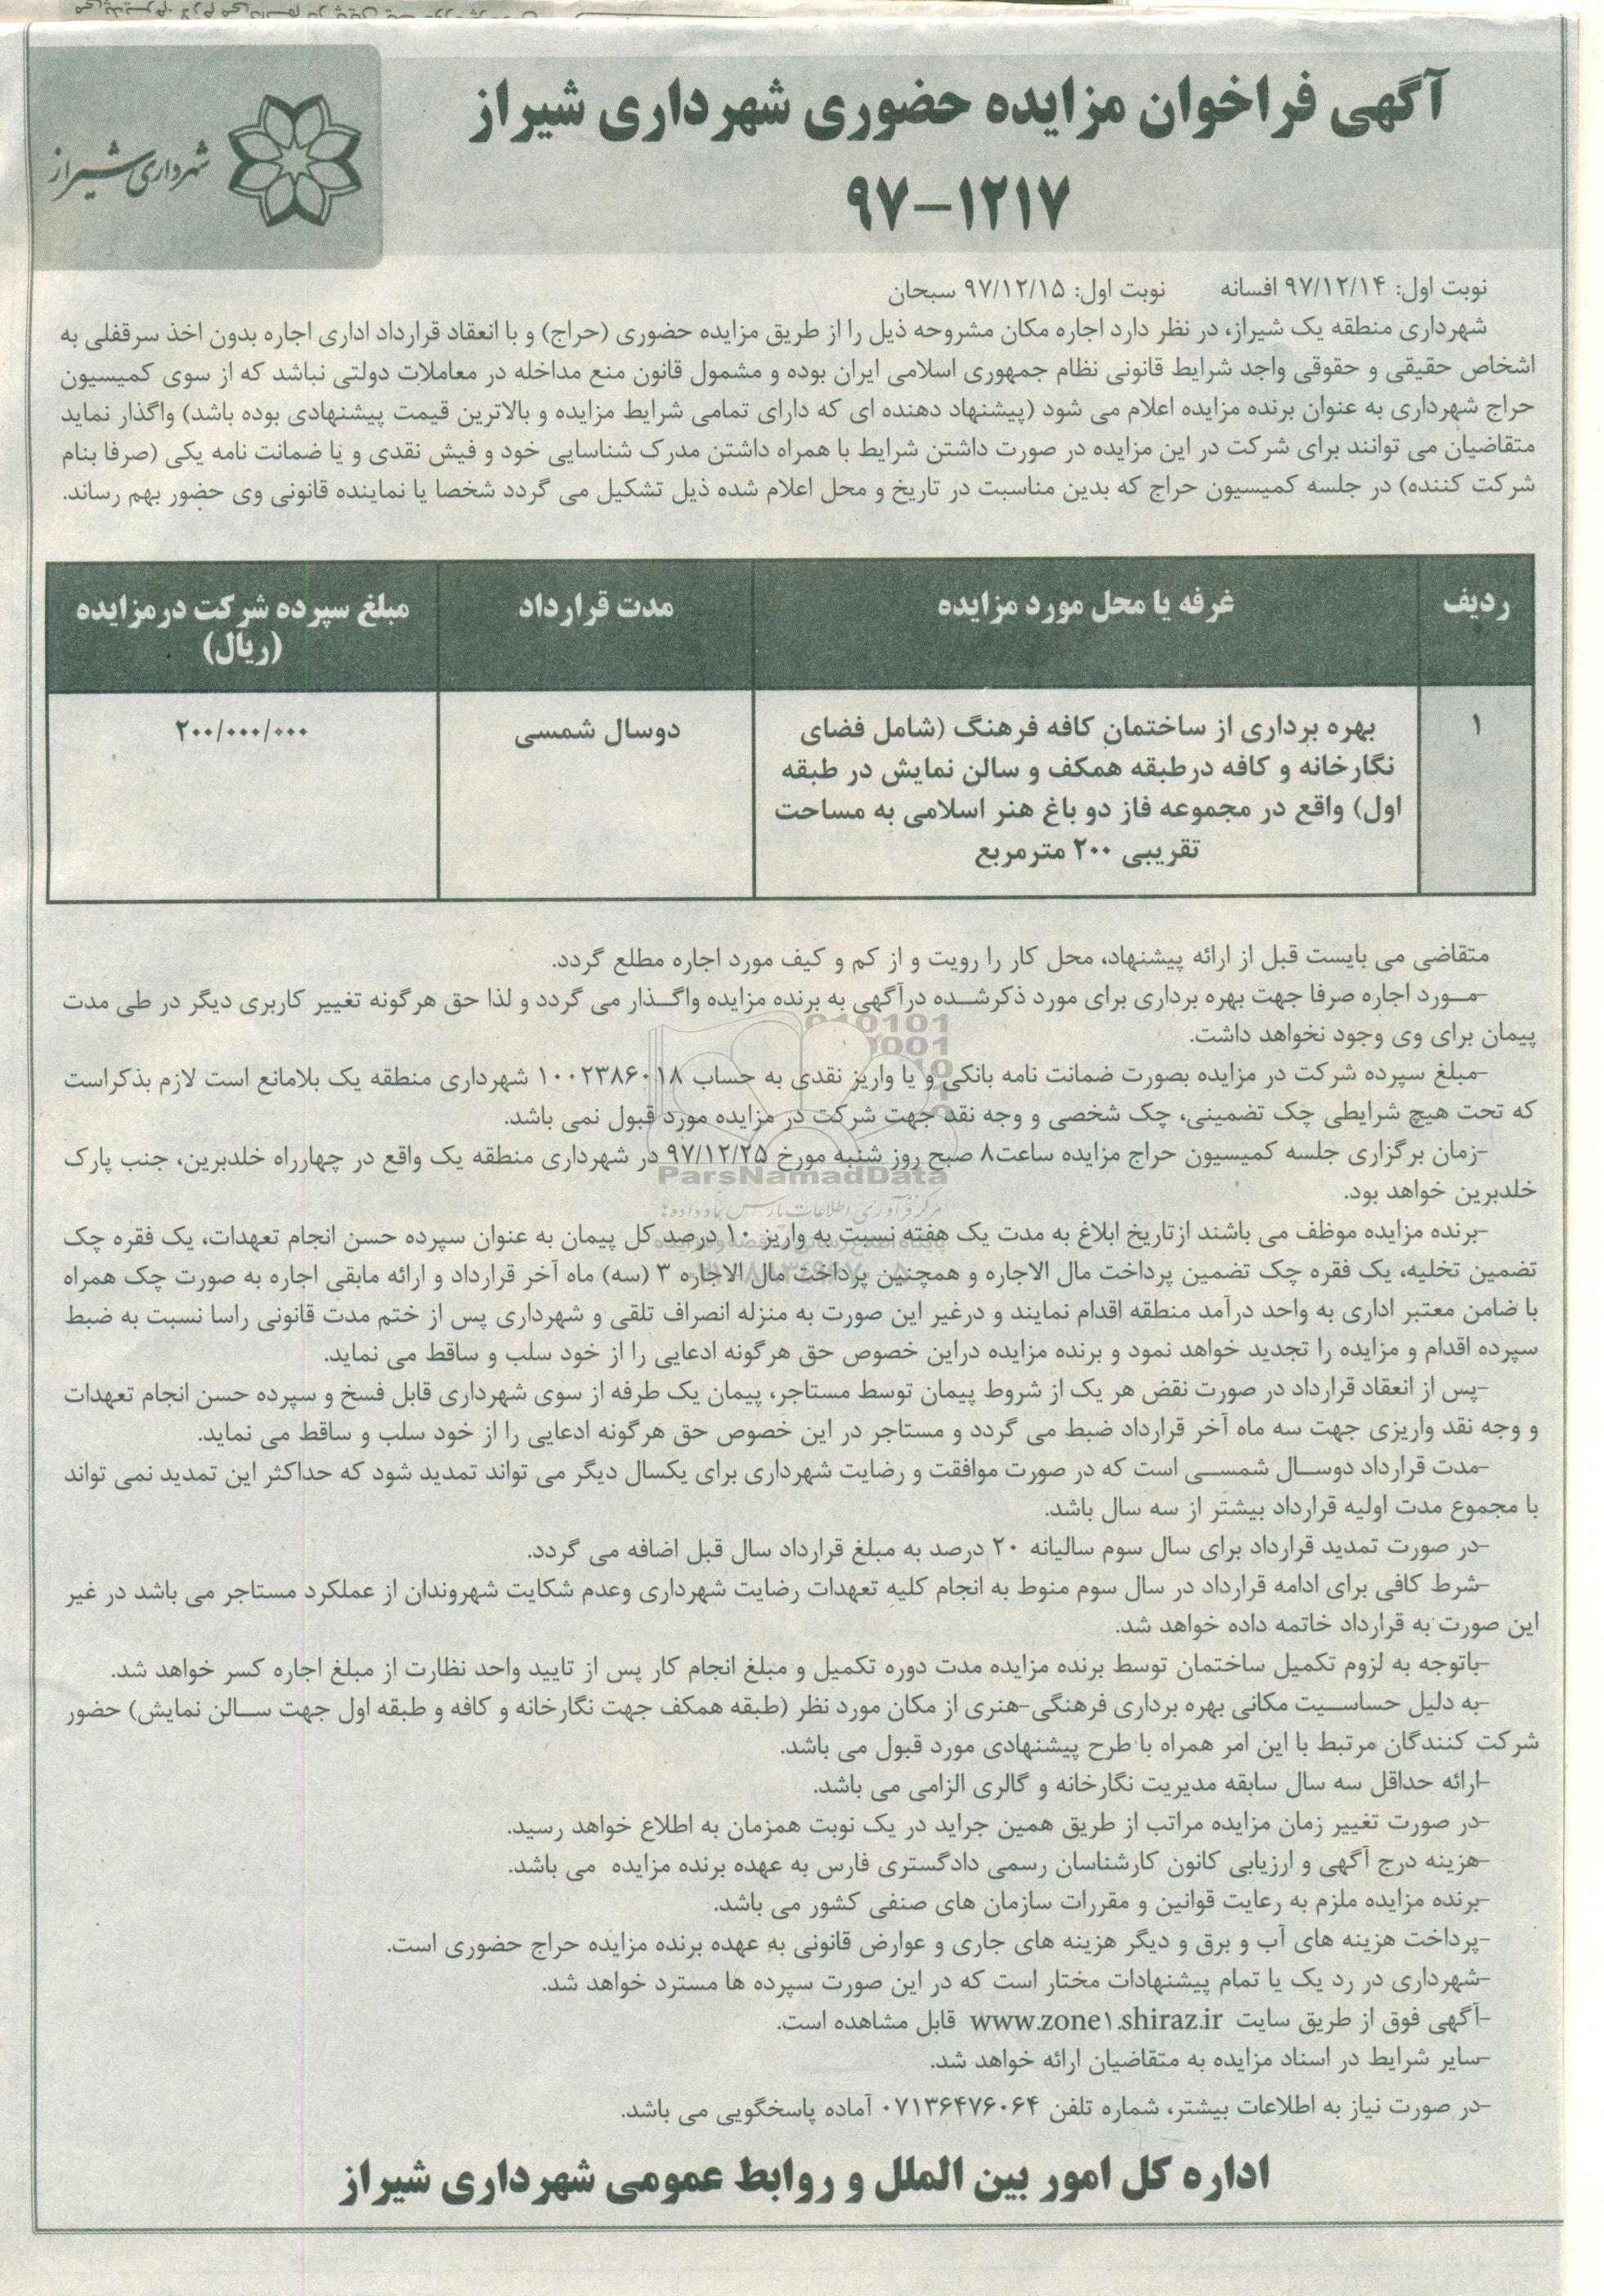 آگهی فراخوان مزایده حضوری شهرداری شیراز
۹۷-۱۲۱۷
شهرداری شیراز
نوبت اول: ۹۷/۱۲/۱۴ افسانه نوبت اول: ۹۷/۱۲/۱۵ سبحان
شهرداری منطقه یک شیراز، در نظر دارد اجاره مکان مشروحه ذیل را از طریق مزایده حضوری (حراج) و با انعقاد قرارداد اداری اجاره بدون اخذ سرقفلی به
اشخاص حقیقی و حقوقی واجد شرایط قانونی نظام جمهوری اسلامی ایران بوده و مشمول قانون منع مداخله در معاملات دولتی نباشد که از سوی کمیسیون
حراج شهرداری به عنوان برنده مزایده اعلام می شود (پیشنهاد دهنده ای که دارای تمامی شرایط مزایده و بالاترین قیمت پیشنهادی بوده باشد) واگذار نماید
متقاضیان می توانند برای شرکت در این مزایده در صورت داشتن شرایط با همراه داشتن مدرک شناسایی خود و فیش نقدی و یا ضمانت نامه یکی (صرفا بنام
شرکت کننده) در جلسه کمیسیون حراج که بدین مناسبت در تاریخ و محل اعلام شده ذیل تشکیل می گردد شخصا یا نماینده قانونی وی حضور بهم رساند.
ردیف غرفه یا محل مورد مزایده مدت قرارداد مبلغ سپرده شرکت درمزایده
(ریال)
۱ بهره برداری از ساختمان کافه فرهنگ (شامل فضای دوسال شمسی ۲۰۰/۰۰۰/۰۰۰
نگارخانه و کافه درطبقه همکف و سالن نمایش در طبقه
اول) واقع در مجموعه فاز دو باغ هنر اسلامی به مساحت
تقریبی ۲۰۰ مترمربع
متقاضی می بایست قبل از ارائه پیشنهاد، محل کار را رویت و از کم و کیف مورد اجاره مطلع گردد.
-مورد اجاره صرفا جهت بهره برداری برای مورد ذکرشده درآگهی به برنده مزایده واگذار می گردد و لذا حق هرگونه تغییر کاربری دیگر در طی مدت
پیمان برای وی وجود نخواهد داشت.
-مبلغ سپرده شرکت در مزایده بصورت ضمانت نامه بانکی و یا واریز نقدی به حساب ۱۰۰۲۳۸۶۰۱۸ شهرداری منطقه یک بلامانع است لازم بذکراست
که تحت هیچ شرایطی چک تضمینی، چک شخصی و وجه نقد جهت شرکت در مزایده مورد قبول نمی باشد.
-زمان برگزاری جلسه کمیسیون حراج مزایده ساعت۸ صبح روز شنبه مورخ ۹۷/۱۲/۲۵ در شهرداری منطقه یک واقع در چهارراه خلدبرین، جنب پارک
ParsNamadData
خلدبرین خواهد بود.
مرکز فرآوری اطلاعات پارس نماد داده ها
-برنده مزایده موظف می باشند ازتاریخ ابلاغ به مدت یک هفته نسبت به واریز ۱۰ درصد کل پیمان به عنوان سپرده حسن انجام تعهدات، یک فقره چک
تضمین تخلیه، یک فقره چک تضمین پرداخت مال الاجاره و همچنین پرداخت مال الاجاره ۳ (سه) ماه آخر قرارداد و ارائه مابقی اجاره به صورت چک همراه
با ضامن معتبر اداری به واحد درآمد منطقه اقدام نمایند و درغیر این صورت به منزله انصراف تلقی و شهرداری پس از ختم مدت قانونی راسا نسبت به ضبط
سپرده اقدام و مزایده را تجدید خواهد نمود و برنده مزایده دراین خصوص حق هرگونه ادعایی را از خود سلب و ساقط می نماید.
-پس از انعقاد قرارداد در صورت نقض هر یک از شروط پیمان توسط مستاجر، پیمان یک طرفه از سوی شهرداری قابل فسخ و سپرده حسن انجام تعهدات
و وجه نقد واریزی جهت سه ماه آخر قرارداد ضبط می گردد و مستاجر در این خصوص حق هرگونه ادعایی را از خود سلب و ساقط می نماید.
-مدت قرارداد دوسال شمسی است که در صورت موافقت و رضایت شهرداری برای یکسال دیگر می تواند تمدید شود که حداکثر این تمدید نمی تواند
با مجموع مدت اولیه قرارداد بیشتر از سه سال باشد.
-در صورت تمدید قرارداد برای سال سوم سالیانه ۲۰ درصد به مبلغ قرارداد سال قبل اضافه می گردد.
-شرط کافی برای ادامه قرارداد در سال سوم منوط به انجام کلیه تعهدات رضایت شهرداری وعدم شکایت شهروندان از عملکرد مستاجر می باشد در غیر
این صورت به قرارداد خاتمه داده خواهد شد.
-باتوجه به لزوم تکمیل ساختمان توسط برنده مزایده مدت دوره تکمیل و مبلغ انجام کار پس از تایید واحد نظارت از مبلغ اجاره کسر خواهد شد.
-به دلیل حساسیت مکانی بهره برداری فرهنگی-هنری از مکان مورد نظر (طبقه همکف جهت نگارخانه و کافه و طبقه اول جهت سالن نمایش) حضور
شرکت کنندگان مرتبط با این امر همراه با طرح پیشنهادی مورد قبول می باشد.
-ارائه حداقل سه سال سابقه مدیریت نگارخانه و گالری الزامی می باشد.
-در صورت تغییر زمان مزایده مراتب از طریق همین جراید در یک نوبت همزمان به اطلاع خواهد رسید.
-هزینه درج آگهی و ارزیابی کانون کارشناسان رسمی دادگستری فارس به عهده برنده مزایده می باشد.
-برنده مزایده ملزم به رعایت قوانین و مقررات سازمان های صنفی کشور می باشد.
-پرداخت هزینه های آب و برق و دیگر هزینه های جاری و عوارض قانونی به عهده برنده مزایده حراج حضوری است.
-شهرداری در رد یک یا تمام پیشنهادات مختار است که در این صورت سپرده ها مسترد خواهد شد.
-آگهی فوق از طریق سایت www.zone۱.shiraz.ir قابل مشاهده است.
-سایر شرایط در اسناد مزایده به متقاضیان ارائه خواهد شد.
-در صورت نیاز به اطلاعات بیشتر، شماره تلفن ۰۷۱۳۶۴۷۶۰۶۴ آماده پاسخگویی می باشد.
اداره کل امور بین الملل و روابط عمومی شهرداری شیراز